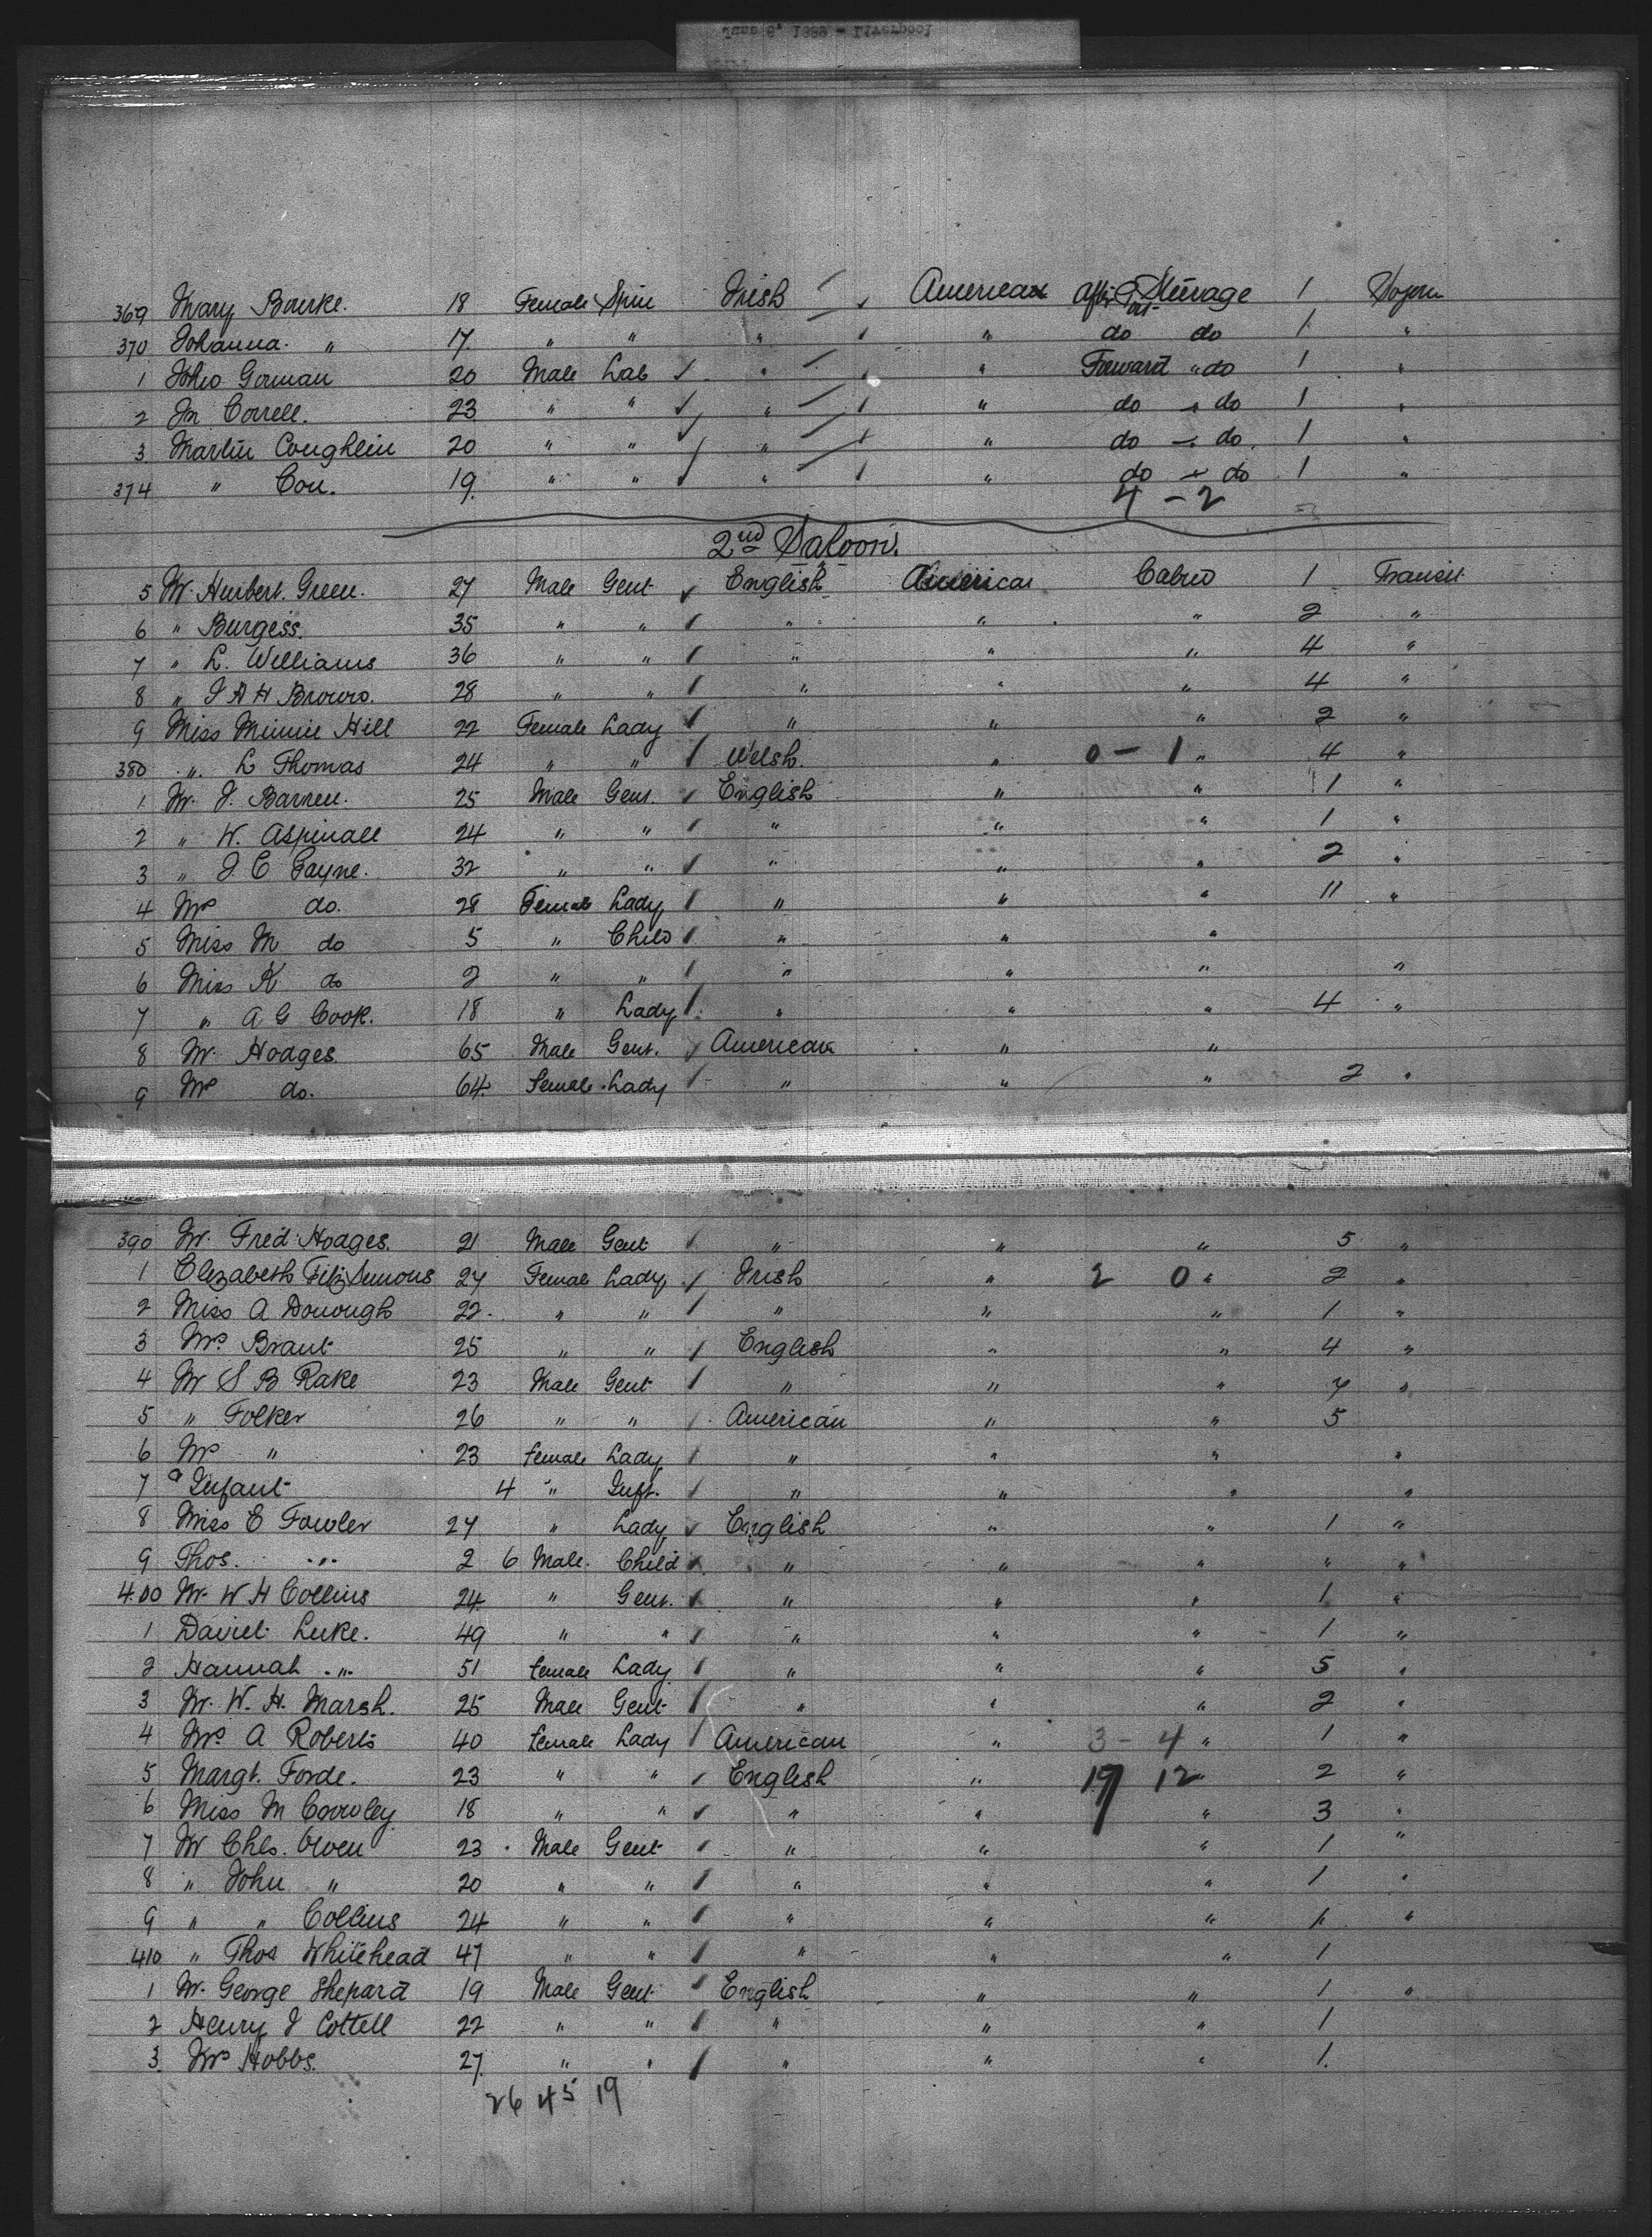 369 Mary Bourke. 18 Female Spin Irish American After Part Steerage 1 Sojourn
370 Johanna " 17. " " " " do do 1 "
1 Thos Gorman 20 Male Lab " " Forward " do 1 "
2 Jn Correll. 23 " " " " do " do 1 "
3. Martin Coughlin 20 " " " " do " do. 1 "
374 " Con. 19. " " " " do " do 1 "
4 - 2
2nd Saloon.
5 Mr. Herbert. Green. 27 Male Gent English America Cabin 1 Transit
6 " Burgess. 35 " " " " " 2 "
7 " L. Williams 36 " " " " " 4 "
8 " J A H Brown. 28 " " " " " 4 "
9 Miss Minnie Hill 22 Female Lady " " " 2 "
380 " L Thomas 24 " " Welsh. " 0 - 1 " 4 "
1 Mr. J. Barren. 25 Male Gent. English " " 1 "
2 " W. Aspinall 24 " " " " " 1 "
3 " J. C Payne. 32 " " " " " 2 "
4 Mrs do. 28 Female Lady " " " 11 "
5 Miss M do 5 " Child " " "
6 Miss K do 2 " " " " " "
7 " A G Cook. 18 " Lady " " " 4 "
8 Mr. Hodges 65 Male Gent. American " "
9 Mrs do. 64. Female Lady " " " 2 "
390 Mr. Fred Hodges. 21 Male Gent " " " 5 "
1 Elizabeth Fitz Simons 27 Female Lady Irish " 2 0 " 2 "
2 Miss A Donough 22. " " " " " 1 "
3 Mrs. Brant 25 " " English " " 4 "
4 Mr S B Rake 23 Male Gent " " " 7 "
5 " Folker 26 " " American " " 5
6 Mrs " 23 Female Lady " " " "
7 Infant 4 " Inft. " " " "
8 Miss E Fowler 27 " Lady English " " 1 "
9 Thos. " 2 6 Male. Child " " " " "
400 Mr. W H Collins 24. " Gent. " " " 1 "
1 David Luke. 49 " " " " " 1 "
2 Hannah " 51 Female Lady " " " 5 "
3 Mr. W. H. Marsh. 25 Male Gent " " " 2 "
4 Mrs. A Roberts 40 Female Lady American " 3 - 4 " 1 "
5 Margt. Forde. 23 " " English " 19 12 " 2 "
6 Miss M Crowley 18 " " " " " 3 "
7 Mr Chls. Owen 23 Male Gent " " " 1 "
8 " John " 20 " " " " " 1 "
9 " " Collins 24 " " " " " 1. "
410 " Thos Whitehead 47 " " " " " 1
1 Mr. George Shepard 19 Male Gent English " " 1 "
2 Henry J Cottell 22 " " " " " 1
3. Mrs Hobbs. 27. " " " " " 1.
26 45 19